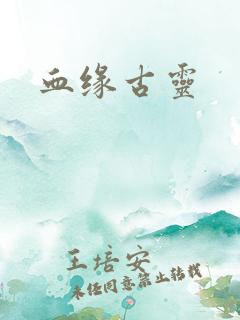 血缘古靈
王培安
未经同意禁止转载